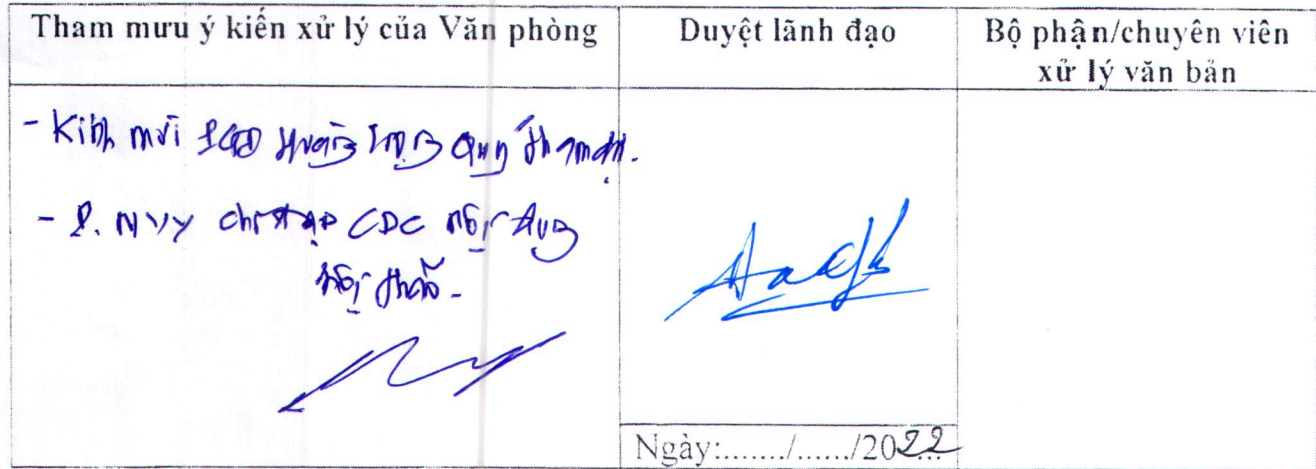 Tham mưu ý kiến xử lý của Văn phòng
Duyệt lãnh đạo
Bộ phận/chuyên viên
xử lý văn bản
- Kính mời
- P. NVY chỉ đạo CDC nội dung
hội thảo.
Ngày:......./....../2022